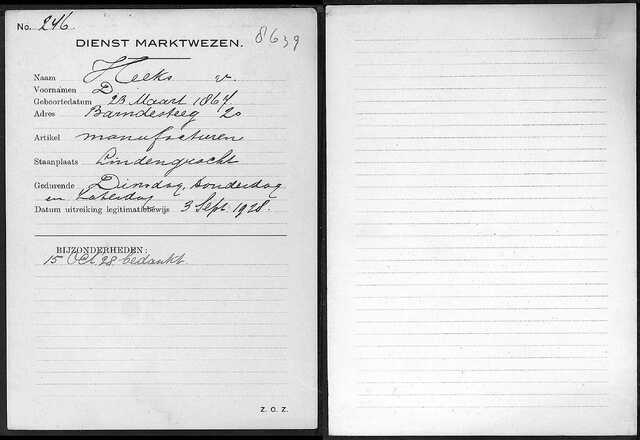 No. 246.
8639
DIENST MARKTWEZEN.
Naam Heeks v.
Voornamen D
Geboortedatum 23 Maart 1864.
Adres Barndesteeg 20
Artikel manufacturen
Staanplaats Lindengracht
Gedurende Dinsdag, donderdag
en Zaterdag
Datum uitreiking legitimatiebewijs 3 Sept. 1928.
BIJZONDERHEDEN:
15 Oct 28 bedankt.
Z. O. Z.